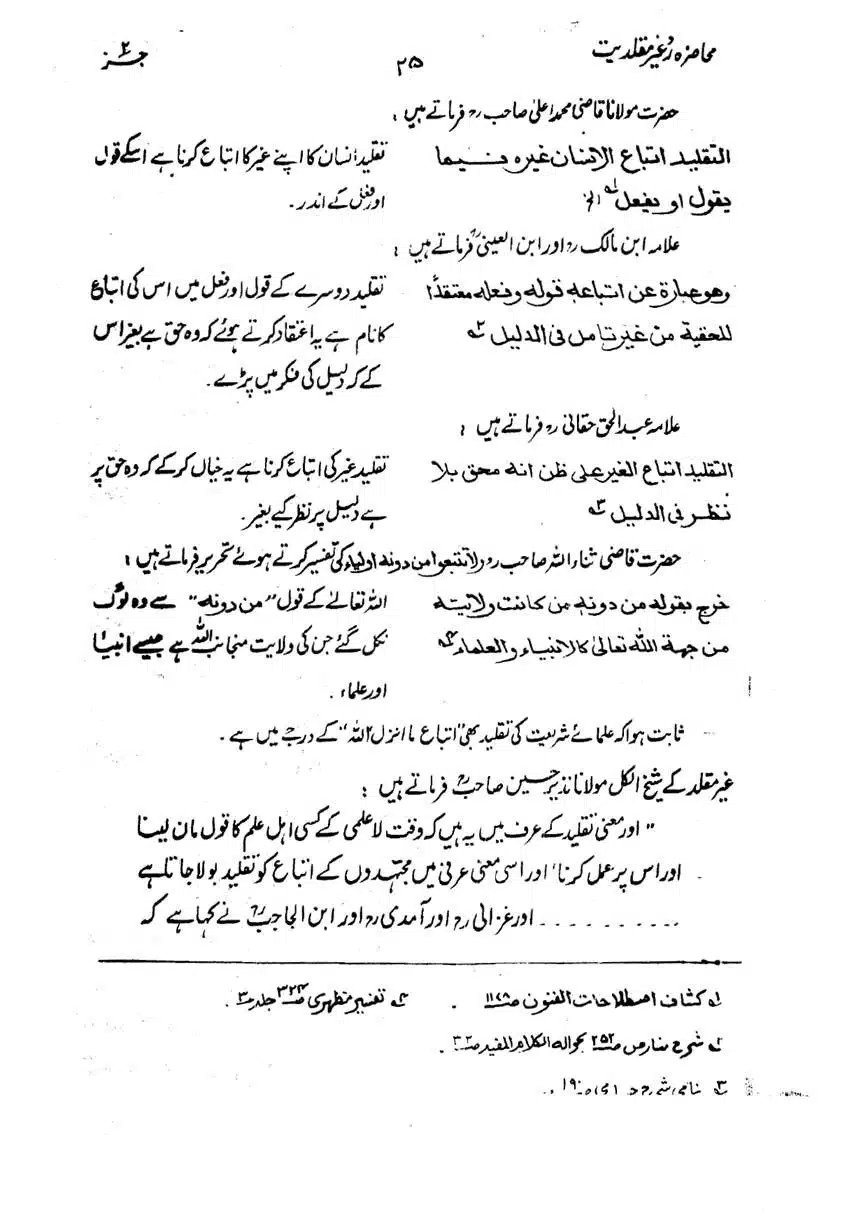 محاضرہ ردّ غیر مقلدیت
۲۵
جز ۲
حضرت مولانا قاضی محمد اعلیٰ صاحب رح فرماتے ہیں :
التقلید اتباع الانسان غیرہ فیما
یقول او یفعل ۱ـہ الخ
تقلید انسان کا اپنے غیر کا اتباع کرنا ہے اسکے قول
اور فعل کے اندر ۔
علامہ ابن مالک رح اور ابن العینی رح فرماتے ہیں :
وھو عبارة عن اتباعہ قولہ وفعلہ معتقدًا
للحقیة من غیر تامل فی الدلیل ۲ـہ
تقلید دوسرے کے قول اور فعل میں اس کی اتباع
کا نام ہے یہ اعتقاد کرتے ہوئے کہ وہ حق ہے بغیر اس
کے کہ دلیل کی فکر میں پڑے ۔
علامہ عبدالحق حقانی رح فرماتے ہیں :
التقلید اتباع الغیر علی ظن انہ محق بلا
نظر فی الدلیل ۳ـہ
تقلید غیر کی اتباع کرنا ہے یہ خیال کرکے کہ وہ حق پر
ہے دلیل پر نظر کیے بغیر ۔
حضرت قاضی ثناء اللہ صاحب رح ولا تتبعوا من دونہ اولیاء کی تفسیر کرتے ہوئے تحریر فرماتے ہیں :
خرج بقولہ من دونہ من کانت ولایتہ
من جھة اللہ تعالیٰ کالانبیاء والعلماء ۴ـہ
اللہ تعالےٰ کے قول "من دونہ" سے وہ لوگ
نکل گئے جن کی ولایت منجانب اللہ ہے جیسے انبیاء
اور علماء ۔
ثابت ہوا کہ علمائے شریعت کی تقلید بھی "اتباع ما انزل اللہ" کے درجے میں ہے ۔
غیر مقلد کے شیخ الکل مولانا نذیر حسین صاحبؒ فرماتے ہیں :
" اور معنی تقلید کے عرف میں یہ ہیں کہ وقت لا علمی کے کسی اہل علم کا قول مان لینا
اور اس پر عمل کرنا ' اور اسی معنی عرفی میں مجتہدوں کے اتباع کو تقلید بولا جاتا ہے
. . . . . . . . . . اور غزالی رح اور آمدی رح اور ابن الحاجبؒ نے کہا ہے کہ
۱ـہ کشاف اصطلاحات الفنون صـ ۱۱۷۸ ۔
۴ـہ تفسیر مظہری صـ ۳۲۴ جلد ۳ ۔
۲ـہ شرح منار ص ۲۵۲ بحوالہ الکلام المفید صـ ۳۲ ۔
۳ـہ نامی شرح حسامی ۱۹۰ ۔